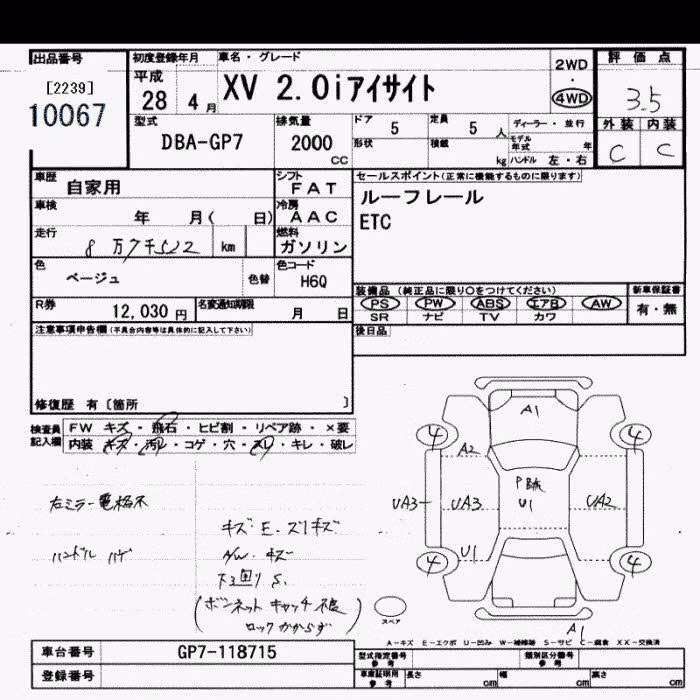 出品番号
[2239]
10067
初度登録年月
平成
28 4 月
車名・グレード
XV 2.0iアイサイト
2WD
・
4WD
評価点
3.5
外装 内装
C C
型式
DBA-GP7
排気量
2000
CC
ドア 5
定員 5 人
形状
積載 kg
ディーラー・並行
モデル年式 年
ハンドル 左・右
車歴
自家用
シフト
FAT
車検
年 月( 日)
冷房
AAC
走行
8万7千522 km
燃料
ガソリン
色
ベージュ
色替
色コード
H6Q
R券
12,030 円
名変通知期限
月 日
セールスポイント(正常に機能するものに限ります)
ルーフレール
ETC
装備品 (純正品に限り○をつけてください)
PS PW ABS エアB AW
SR ナビ TV カワ
新車保証書
有・無
後日品
注意事項申告欄(不具合内容等は具体的に記入して下さい)
修復歴 有〔箇所 〕
検査員記入欄
FW キズ・飛石・ヒビ割・リペア跡・×要
内装 キズ・汚れ・コゲ・穴・スレ・キレ・破レ
右ミラー電格不
ハンドル ハゲ
キズ E. スリキズ
A/W. キズ
下回り S.
(ボンネットキャッチ不良
ロックかからず)
A1
4 4
A2
UA3 UA3
U1
UA2
4 U1 4
A1
スペア
A-キズ E-エクボ U-凹み W-補修跡 S-サビ C-腐食 XX-交換済
車台番号 GP7-118715
登録番号
型式指定番号
参考
類別区分番号
参考
車庫証明用
参考
長さ cm
幅 cm
高さ cm